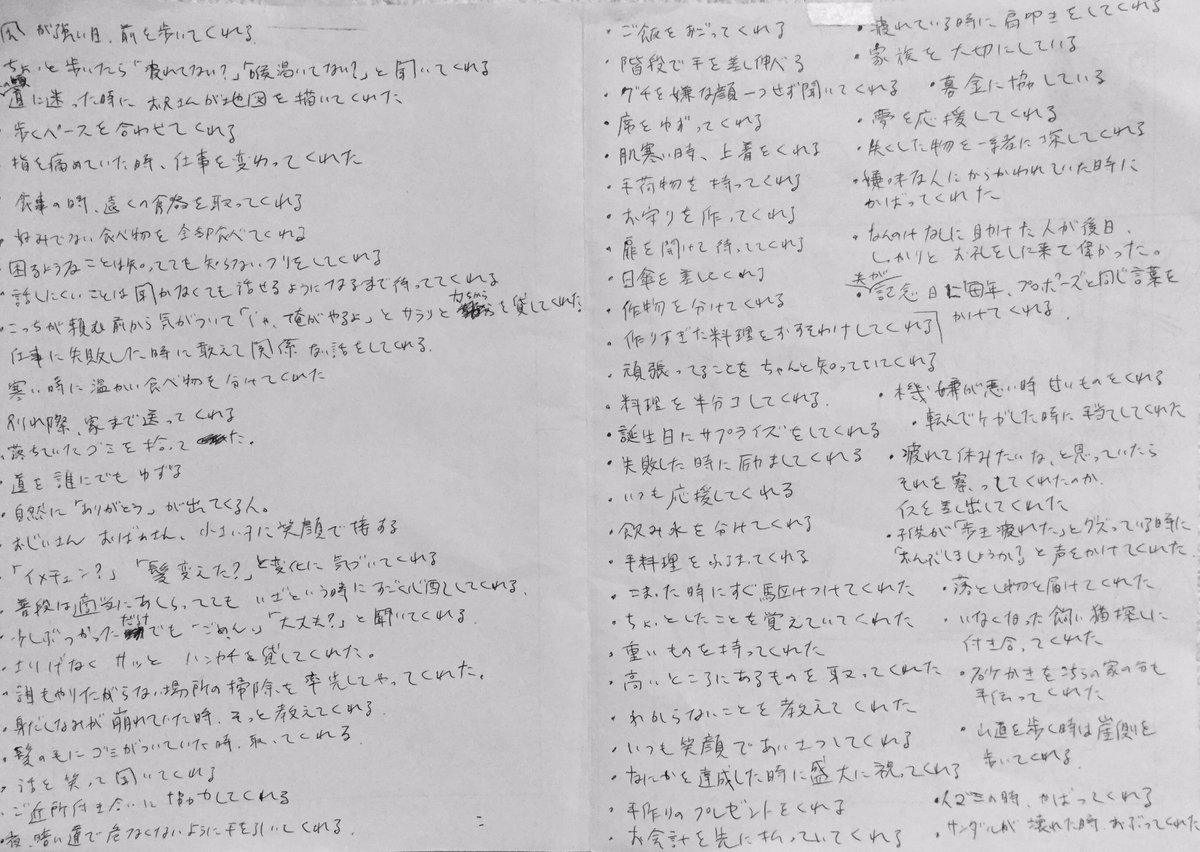 風が強い日、前を歩いてくれる
ちょっと歩いたら「疲れてない?」「喉渇いてない?」と聞いてくれる
道に迷った時に お兄さんが地図を描いてくれた
・歩くペースを合わせてくれる
・指を痛めていた時、仕事を変わってくれた
食事の時、遠くの食器を取ってくれる
・好みでない食べ物を全部食べてくれる
・困るようなことは知ってても知らないフリをしてくれる
・話しにくいことは聞かなくても話せるようになるまで待っててくれる
・こっちが頼む前から気がついて「じゃ、俺がやるよ」とサラリと力ちからを貸してくれた
仕事に失敗した時に敢えて関係ない話をしてくれる.
寒い時に温かい食べ物を分けてくれた
別れ際、家まで送ってくれる
・落ちていたゴミを拾ってた。
・道を誰にでもゆずる
・自然に「ありがとう」が出てくる人。
・おじいさん おばあさん、小さい子に笑顔で接する
・「イメチェン?」「髪変えた?」と変化に気づいてくれる
・普段は適当にあしらっててもいざという時にすごく心配してくれる.
・少しぶつかっただけでも「ごめん」「大丈夫?」と聞いてくれる
・さりげなく サッと ハンカチを貸してくれた。
・誰もやりたがらない場所の掃除を率先してやってくれた。
・身だしなみが崩れていた時、そっと教えてくれる
・髪の毛にゴミがついていた時、取ってくれる
・話を笑って聞いてくれる
・ご近所付き合いに協力してくれる
・夜、暗い道で危なくないように手を引いてくれる.
・ご飯をおごってくれる
・階段で手を差し伸べる
・グチを嫌な顔一つせず聞いてくれる
・席をゆずってくれる
・肌寒い時、上着をくれる
・手荷物を持ってくれる
・お守りを作ってくれる
・扉を開けて待っててくれる
・日傘を差してくれる
・作物を分けてくれる
・作りすぎた料理をおすそわけしてくれる
・頑張ってることをちゃんと知っていてくれる
・料理を半分コしてくれる.
・誕生日にサプライズをしてくれる
・失敗した時に励ましてくれる
・いつも応援してくれる
・飲み水を分けてくれる
・手料理をふるまってくれる
・こまった時にすぐ駆けつけてくれた
・ちょっとしたことを覚えていてくれた
・重いものを持ってくれた
・高いところにあるものを取ってくれた
・わからないことを教えてくれた
・いつも笑顔であいさつしてくれる
・なにかを達成した時に盛大に祝ってくれる
・手作りのプレゼントをくれる
・お会計を先に払っていてくれる
・疲れている時に肩叩きをしてくれる
・家族を大切にしている
・募金に協している
・夢を応援してくれる
・失くした物を一緒に探してくれる
・嫌味な人にからかわれていた時に
かばってくれた
・なんのけなしに助けた人が後日、
しっかりとお礼をしに来て偉かった。
・夫が記念日に毎年、プロポーズと同じ言葉を
かけてくれる
・機嫌が悪い時 甘いものをくれる
・転んでケガした時に手当てしてくれた
・疲れて休みたいな、と思っていたら
それを察してくれたのか、
イスを差し出してくれた
・子供が「歩き疲れた」とグズっている時に
と声をかけてくれた
・落とし物を届けてくれた
・いなくなった飼い猫探しに
付き合ってくれた
・雪かきをこちらの家の分も
手伝ってくれた
・山道を歩く時は崖側を
歩いてくれる
・イジメの時、かばってくれる
・サンダルが壊れた時、おぶってくれた